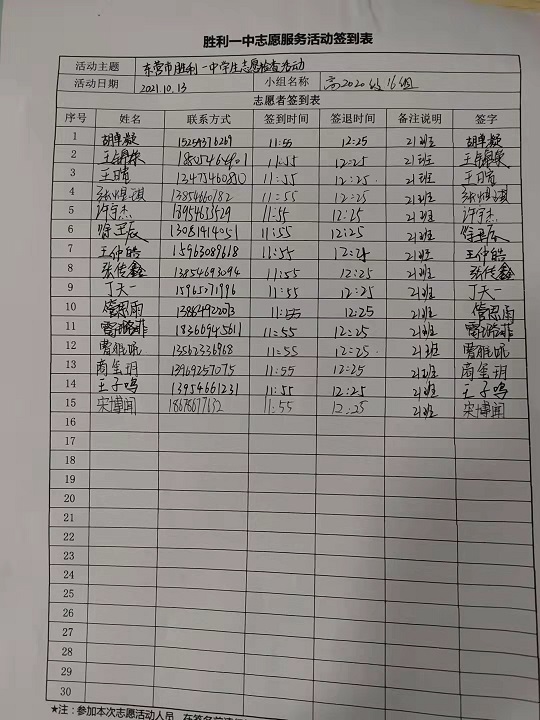 胜利一中志愿服务活动签到表
活动主题 东营市胜利一中学生志愿检查活动
活动日期 2021.10.13 小组名称 高2020级16组
志愿者签到表
序号 姓名 联系方式 签到时间 签退时间 备注说明 签字
1 胡卓凝 15254376269 11:55 12:25 21班 胡卓凝
2 王锦荣 11:55 12:25 21班 王锦荣
3 13475460810 11:55 12:25 21班
4 张煜淇 13854660782 11:55 12:25 21班 张煜淇
5 许宇杰 13954633529 11:55 12:25 21班 许宇杰
6 徐卫辰 13081414051 11:55 12:25 21班 徐卫辰
7 王仲皓 15963089618 11:55 12:25 21班 王仲皓
8 张传鑫 13854693094 11:55 12:25 21班 张传鑫
9 丁天一 15965271996 11:55 12:25 21班 丁天一
10 管思雨 13864922073 11:55 12:25 21班 管思雨
11 18366945611 11:55 12:25 21班
12 13562336968 11:55 12:25 21班
13 商玺玥 13969257075 11:55 12:25 21班 商玺玥
14 王子鸣 13954661231 11:55 12:25 21班 王子鸣
15 宋博闻 18678677632 11:55 12:25 21班 宋博闻
16
17
18
19
20
21
22
23
24
25
26
27
28
29
30
*注：参加本次志愿活动人员，在签名前请